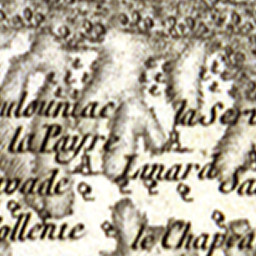 ulouniac
la Ser
la Payre
Linard
vade
Sa
ollenie
le Chapea